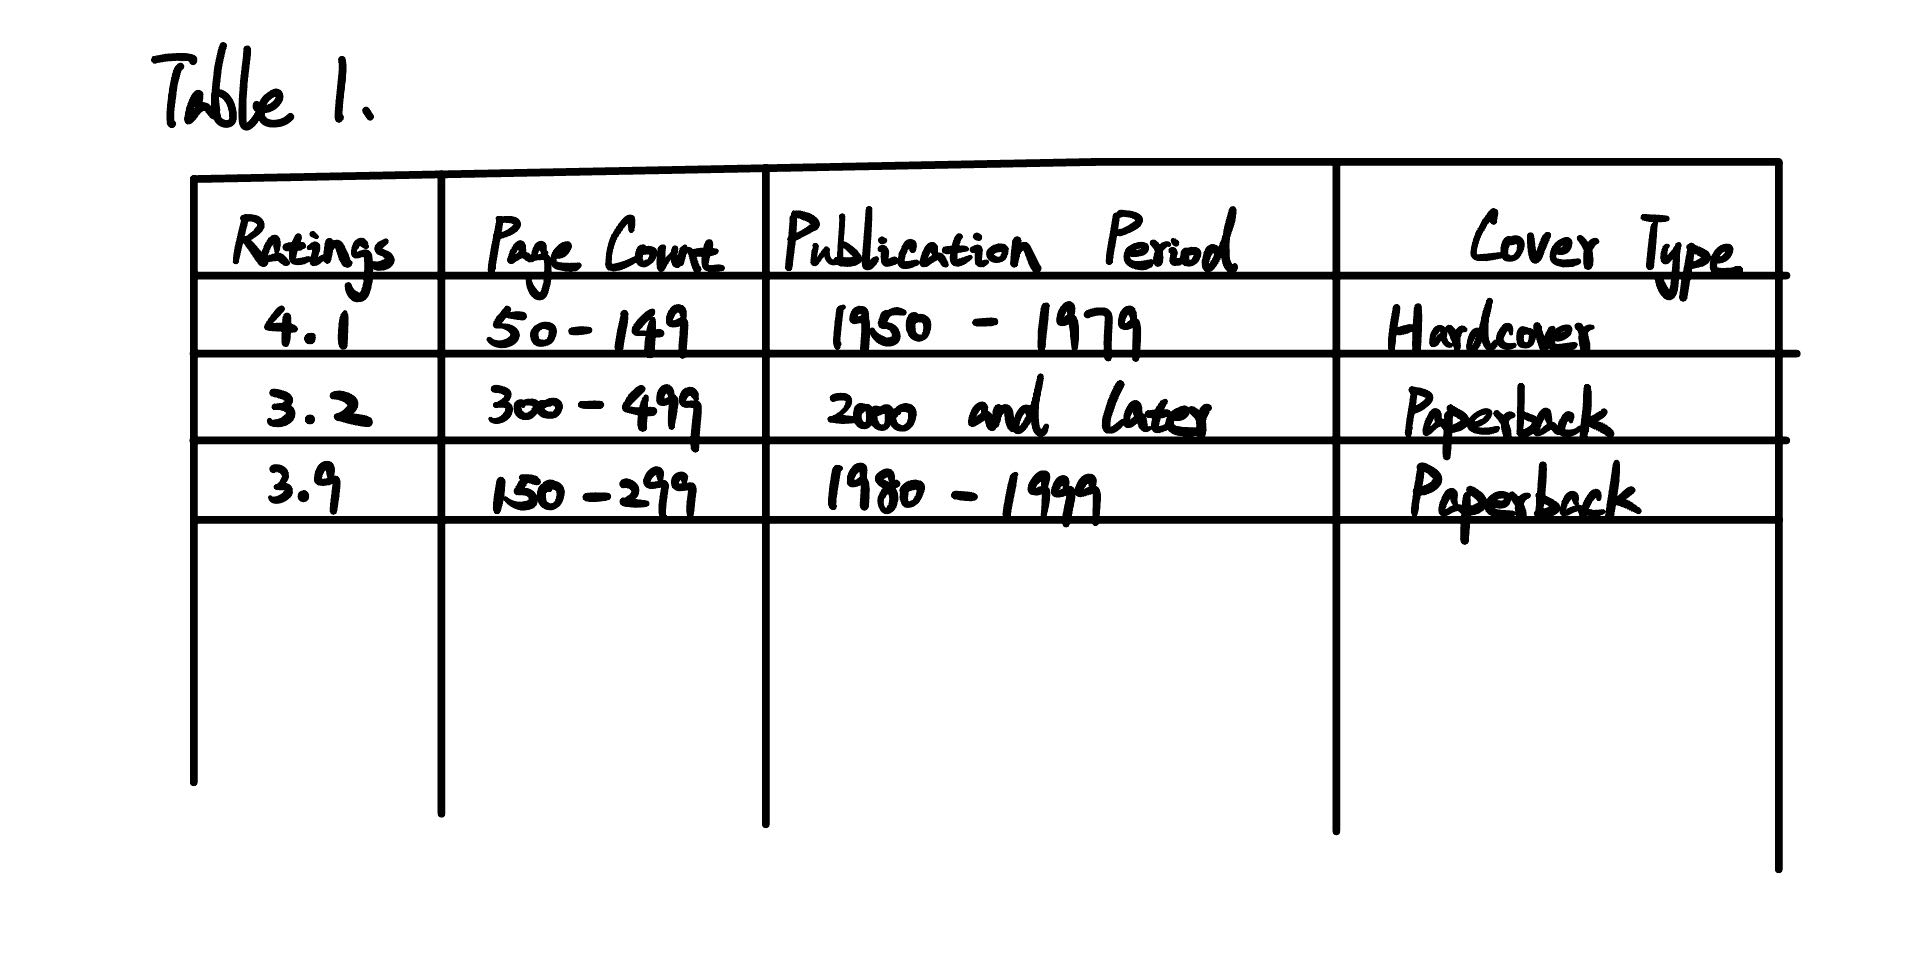 Table 1.
Ratings Page Count Publication Period Cover Type
4.1 50-149 1950 - 1979 Hardcover
3.2 300-499 2000 and Later Paperback
3.9 150-299 1980 - 1999 Paperback